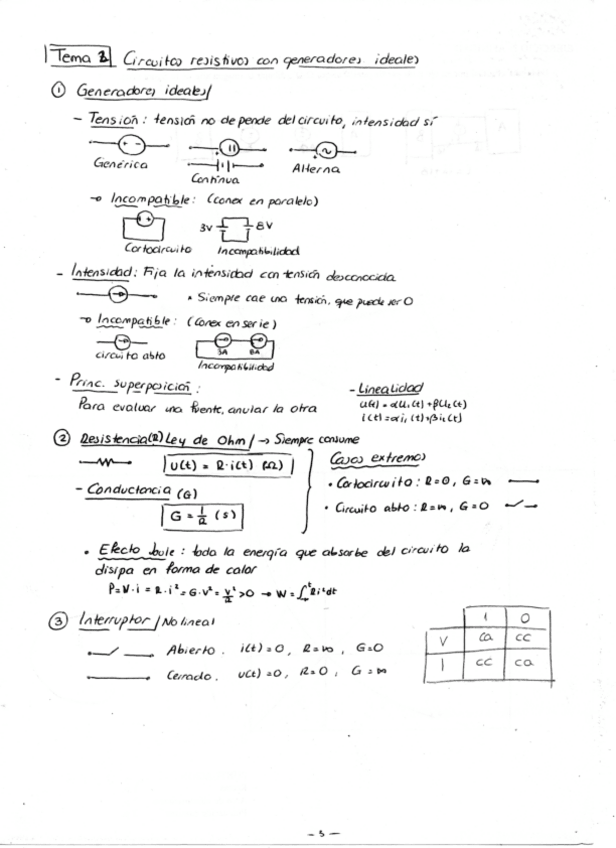 Tema 2 Circuitos resistivos con generadores ideales
① Generadores ideales/
- Tensión: tensión no depende del circuito, intensidad sí
+ -
Genérica
Continua
Alterna
Incompatible: (conex en paralelo)
3V 8V
Cortocircuito Incompatibilidad
- Intensidad: Fija la intensidad con tensión desconocida
* Siempre cae una tensión, que puede ser 0
Incompatible: (conex en serie)
3A 8A
circuito abto Incompatibilidad
- Princ. superposición:
Para evaluar una fuente, anular la otra
- Linealidad
u(t) = αu₁(t) + βu₂(t)
i(t) = αi₁(t) + βi₂(t)
② Resistencia(R) Ley de Ohm/ → Siempre consume
u(t) = R·i(t) (Ω)
- Conductancia (G)
G = 1/R (S)
Casos extremos
• Cortocircuito: R=0, G=∞
• Circuito abto: R=∞, G=0
• Efecto Joule: toda la energía que absorbe del circuito la
disipa en forma de calor
P=V·i = R·i² = G·V² = V²/R >0 → W = ∫ Ri²dt
③ Interruptor/No lineal
Abierto. i(t)=0, R=∞, G=0
Cerrado. u(t)=0, R=0, G=∞
1 0
V ca cc
I cc ca
- 5 -